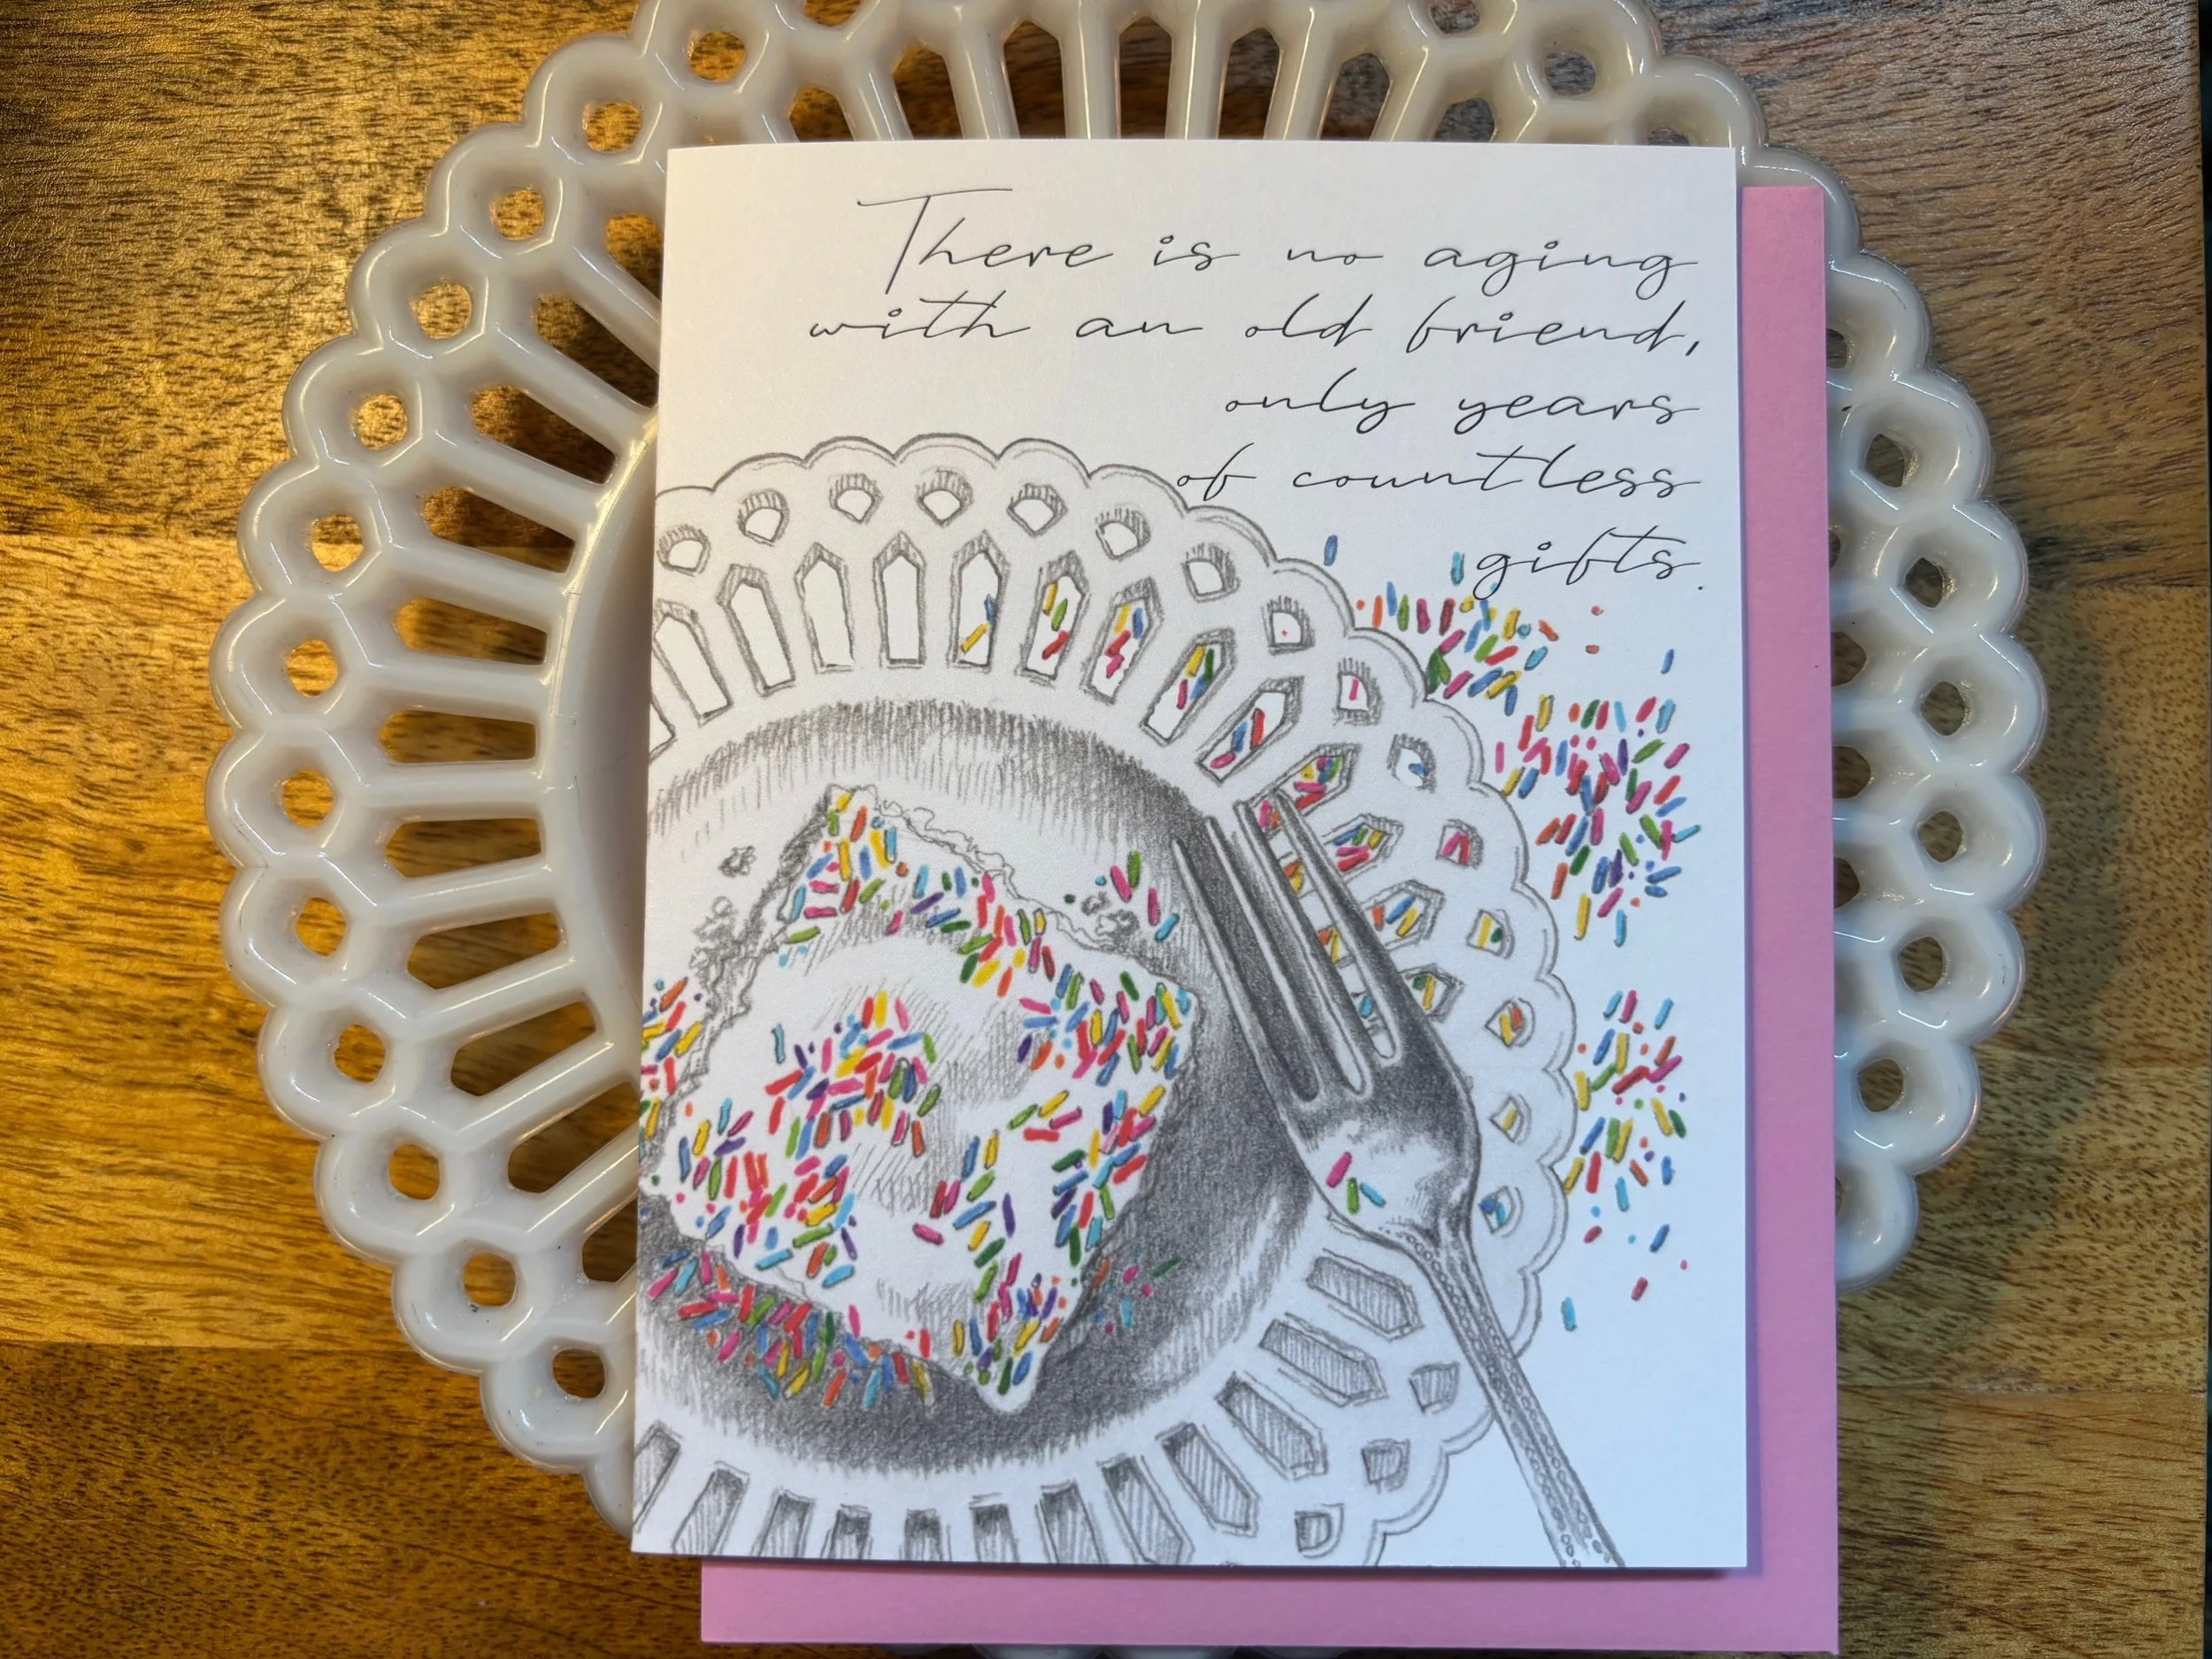 There is no aging
with an old friend,
only years
of countless
gifts.